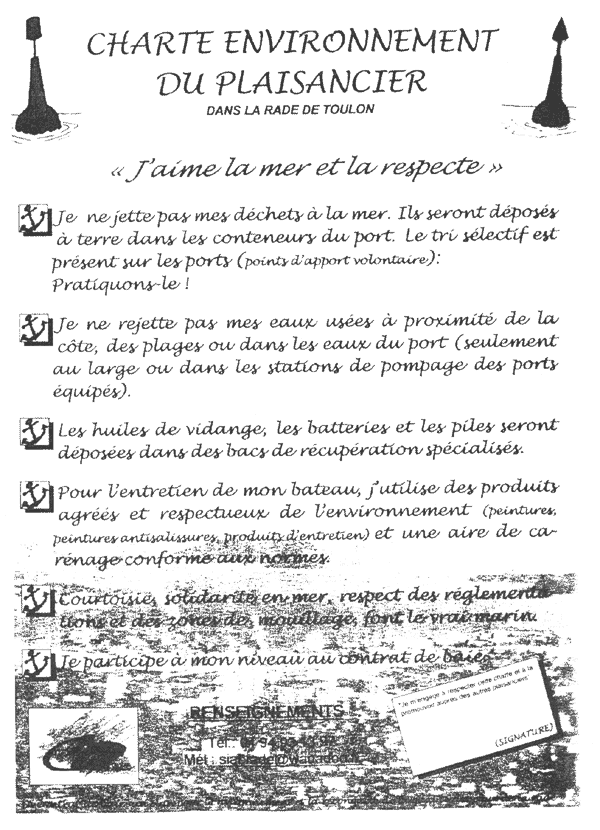 CHARTE ENVIRONNEMENT
DU PLAISANCIER
DANS LA RADE DE TOULON
« J'aime la mer et la respecte »
Je ne jette pas mes déchets à la mer. Ils seront déposés
à terre dans les conteneurs du port. Le tri sélectif est
présent sur les ports (points d'apport volontaire):
Pratiquons-le !
Je ne rejette pas mes eaux usées à proximité de la
côte, des plages ou dans les eaux du port (seulement
au large ou dans les stations de pompage des ports
équipés).
Les huiles de vidange, les batteries et les piles seront
déposées dans des bacs de récupération spécialisés.
Pour l'entretien de mon bateau, j'utilise des produits
agréés et respectueux de l'environnement (peintures,
peintures antisalissures, produits d'entretien) et une aire de ca-
rénage conforme aux normes.
Courtoisie, solidarité en mer, respect des réglementa-
tions et des zones de mouillage, font le vrai marin.
Je participe à mon niveau au contrat de baie.
"Je m'engage à respecter cette charte et à la
promouvoir auprès des autres plaisanciers"
(SIGNATURE)
RENSEIGNEMENTS
Tél.: 04 94